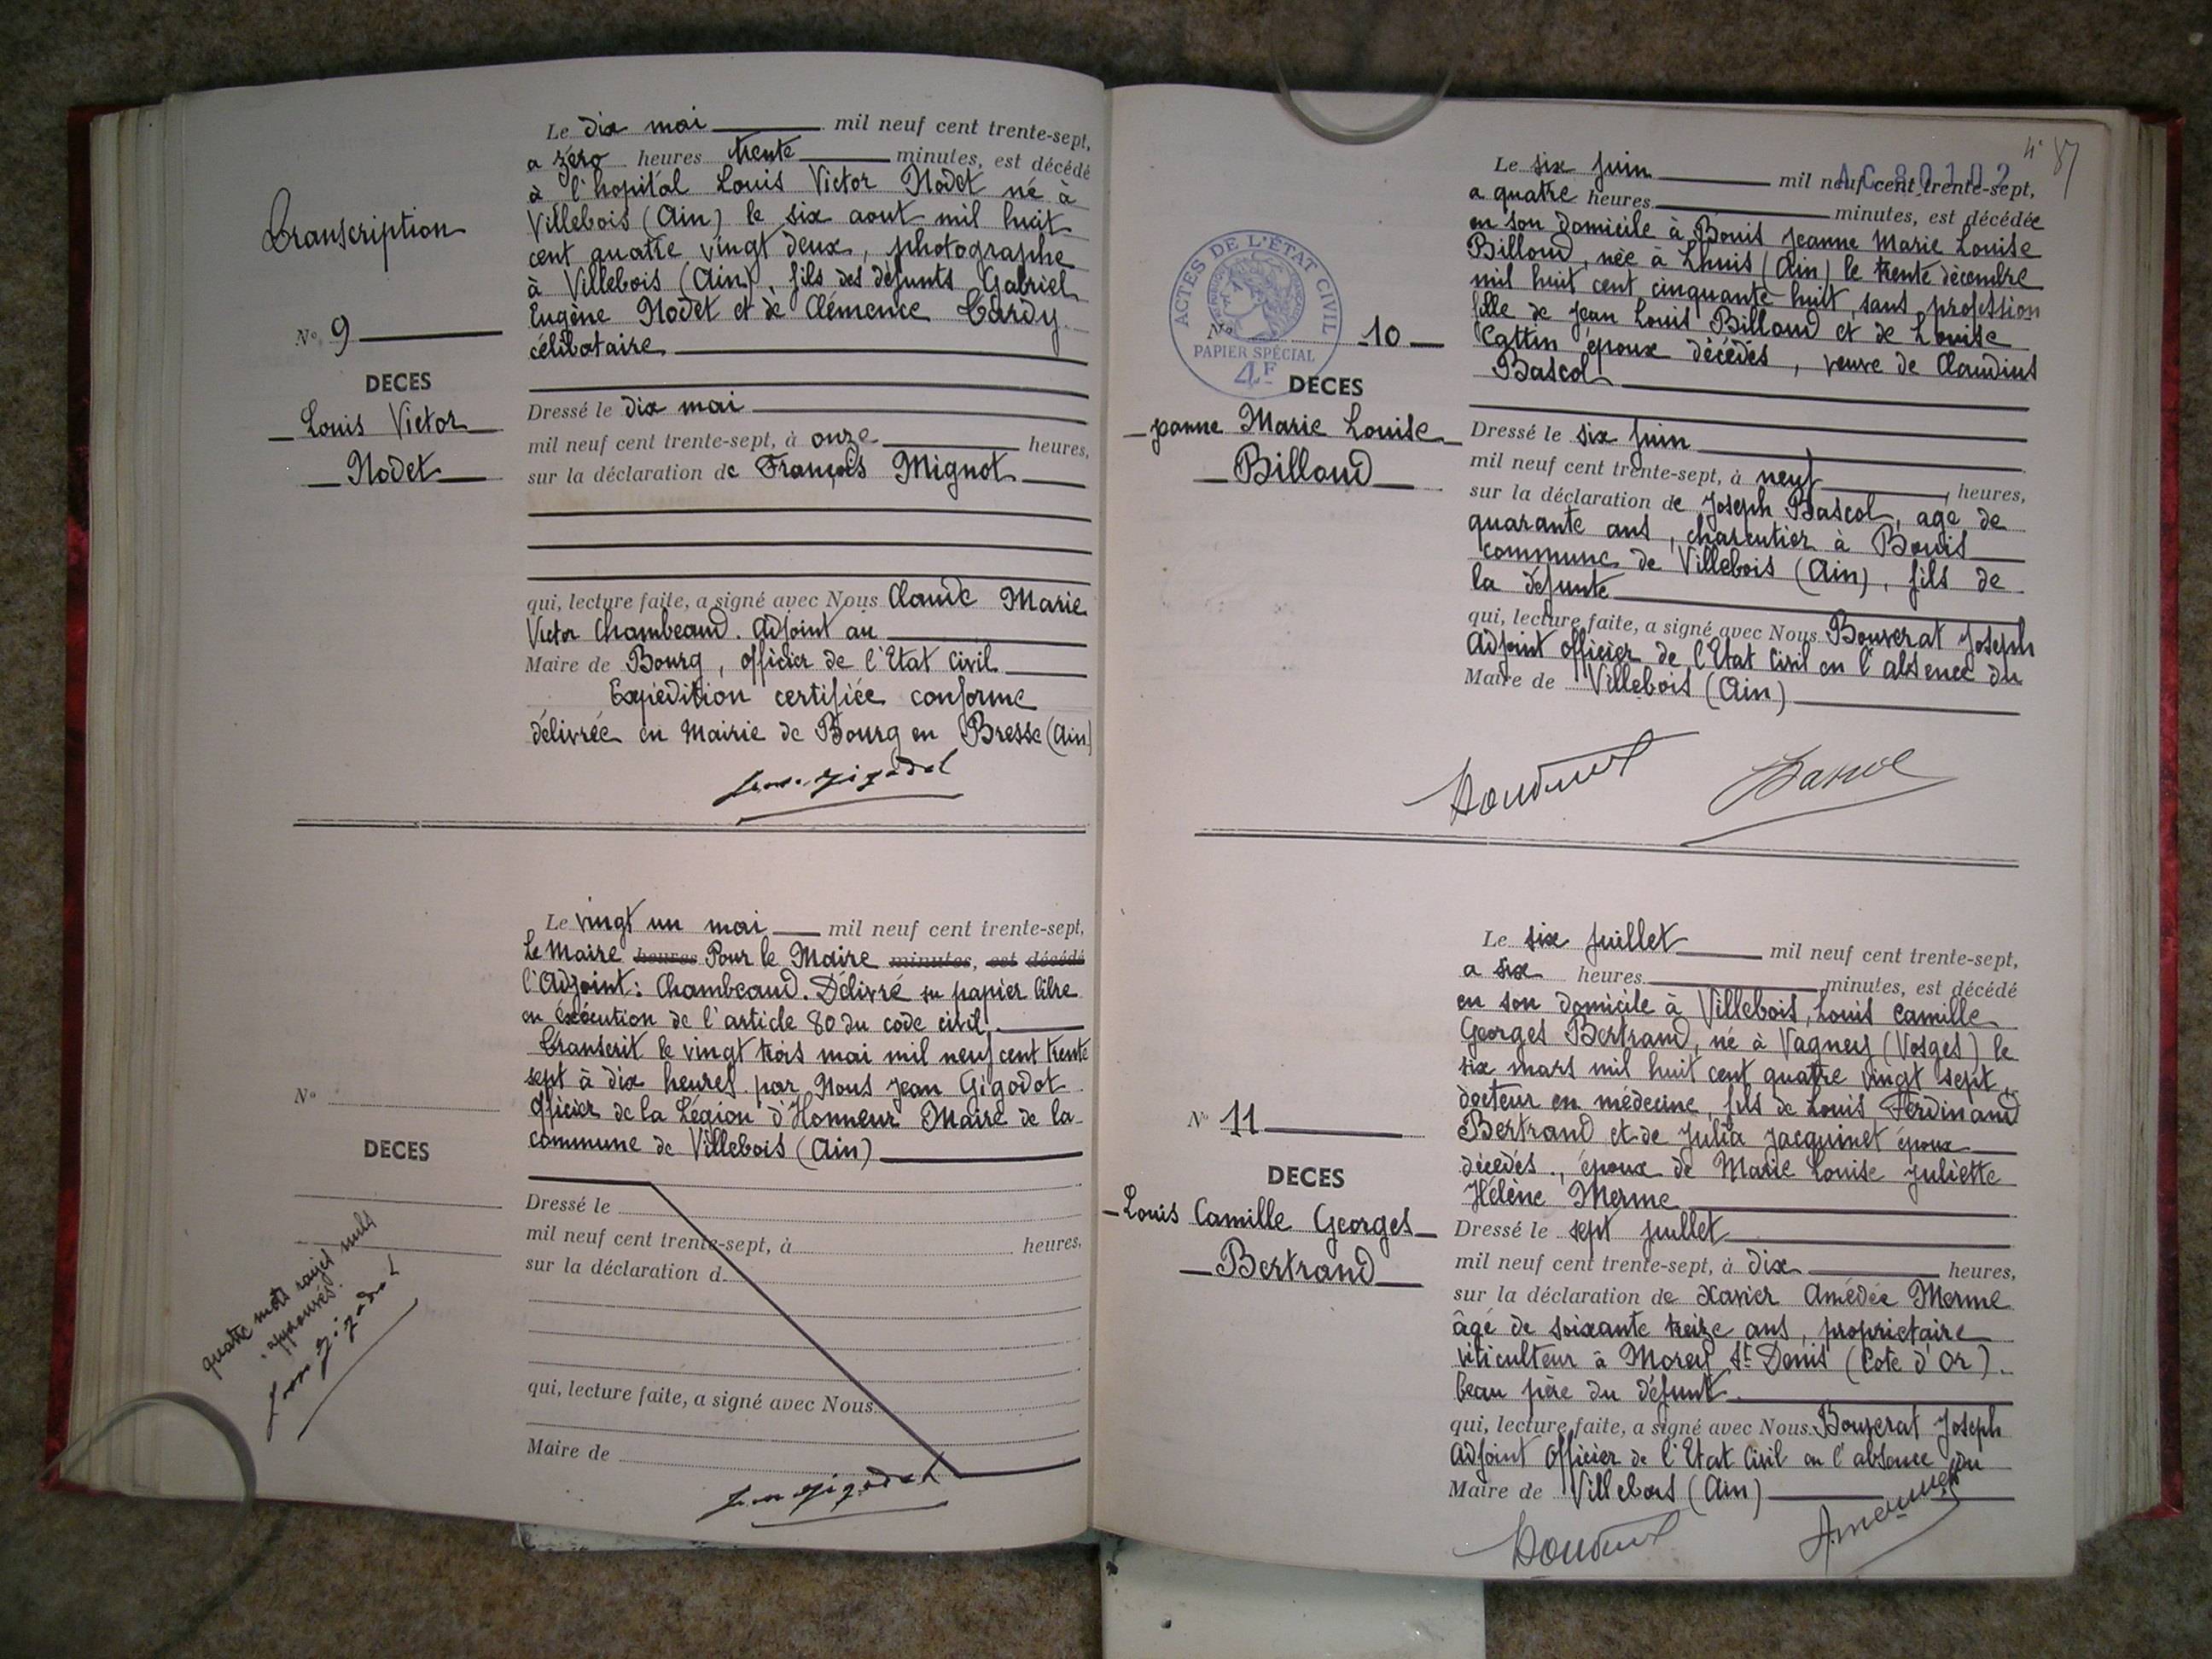 Transcription
N° 9
DECES
Louis Victor
Nodet
Le dix mai mil neuf cent trente-sept,
a zéro heures trente minutes, est décédé
à l'hopital Louis Victor Nodet né à
Villebois (Ain) le six aout mil huit
cent quatre vingt deux, photographe
à Villebois (Ain), fils des défunts Gabriel
Eugène Nodet et de Clémence Cardy
célibataire
Dressé le dix mai
mil neuf cent trente-sept, à onze heures,
sur la déclaration de François Mignot
qui, lecture faite, a signé avec Nous Claude Marie
Victor Chambeaud. Adjoint au
Maire de Bourg, officier de l'Etat Civil
Expédition certifiée conforme
délivrée en Mairie de Bourg en Bresse (Ain)
N°
DECES
quatre mots rayés nuls
approuvés.
Le vingt un mai mil neuf cent trente-sept,
Le Maire heures Pour le Maire minutes, est décédé
l'Adjoint: Chambeaud. Délivré su papier libre
en éxécution de l'article 80 du code civil.
Transcrit le vingt trois mai mil neuf cent trente
sept à dix heures par Nous Jean Gigodot
officier de la Légion d'Honneur Maire de la
commune de Villebois (Ain)
Dressé le
mil neuf cent trente-sept, à heures,
sur la déclaration d
qui, lecture faite, a signé avec Nous
Maire de
87
AC 80102
ACTES DE L'ÉTAT CIVIL
PAPIER SPÉCIAL
4F
N° 10
DECES
Jeanne Marie Louise
Billoud
Le six Juin mil neuf cent trente-sept,
a quatre heures minutes, est décédée
en son domicile à Bouis Jeanne Marie Louise
Billoud, née à Lhuis (Ain) le trente décembre
mil huit cent cinquante huit, sans profession
fille de Jean Louis Billoud et de Louise
Cattin époux décédés, veuve de Claudius
Bascol
Dressé le six Juin
mil neuf cent trente-sept, à neuf heures,
sur la déclaration de Joseph Bascol, age de
quarante ans, charcutier à Bouis
commune de Villebois (Ain), fils de
la défunte
qui, lecture faite, a signé avec Nous Bouverat Joseph
Adjoint officier de l'Etat Civil en l'absence du
Maire de Villebois (Ain)
N° 11
DECES
Louis Camille Georges
Bertrand
Le six Juillet mil neuf cent trente-sept,
a six heures minutes, est décédé
en son domicile à Villebois, Louis Camille
Georges Bertrand, né à Vagney (Vosges) le
six mars mil huit cent quatre vingt sept,
docteur en médecine, fils de Louis Ferdinand
Bertrand et de Julia Jacquinet époux
décédés., époux de Marie Louise Juliette
Hélène Merme
Dressé le sept Juillet
mil neuf cent trente-sept, à dix heures,
sur la déclaration de Xavier Amédée Merme
âgé de soixante treize ans, propriétaire
viticulteur à Morey St Denis (Cote d'Or).
beau père du défunt.
qui, lecture faite, a signé avec Nous Bouverat Joseph
Adjoint Officier de l'Etat Civil en l'absence du
Maire de Villebois (Ain)